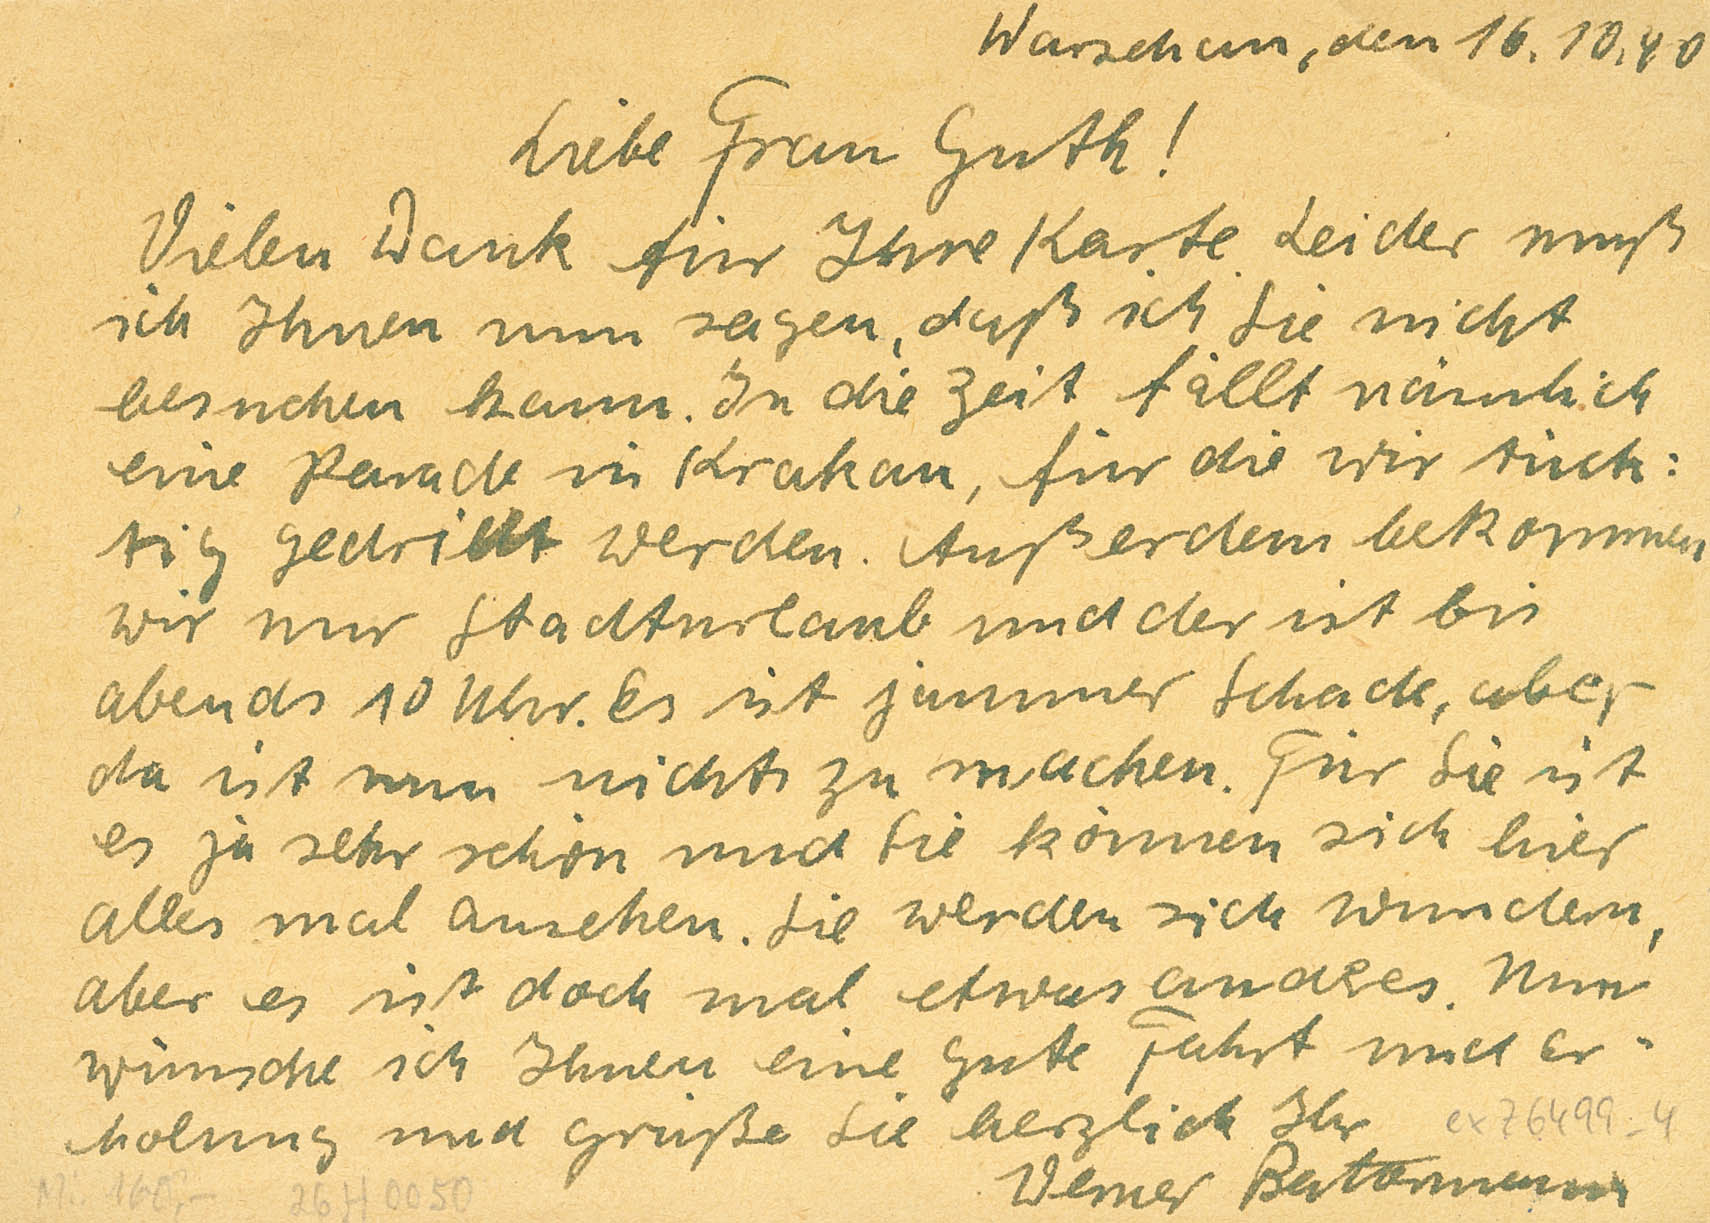 Warschau, den 16.10.40
Liebe Frau Guth!
Vielen Dank für Ihre Karte. Leider muß
ich Ihnen nun sagen, daß ich Sie nicht
besuchen kann. In die Zeit fällt nämlich
eine Parade in Krakau, für die wir tüch:
tig gedrillt werden. Außerdem bekommen
wir nur Stadturlaub und der ist bis
abends 10 Uhr. Es ist jammer Schade, aber
da ist nun nichts zu machen. Für Sie ist
es ja sehr schön und Sie können sich hier
alles mal ansehen. Sie werden sich wundern,
aber es ist doch mal etwas andres. Nun
wünsche ich Ihnen eine gute Fahrt und Er-
holung und grüße Sie herzlich Ihr
ex76499_4
Werner
Mi. 160,- 26H0050